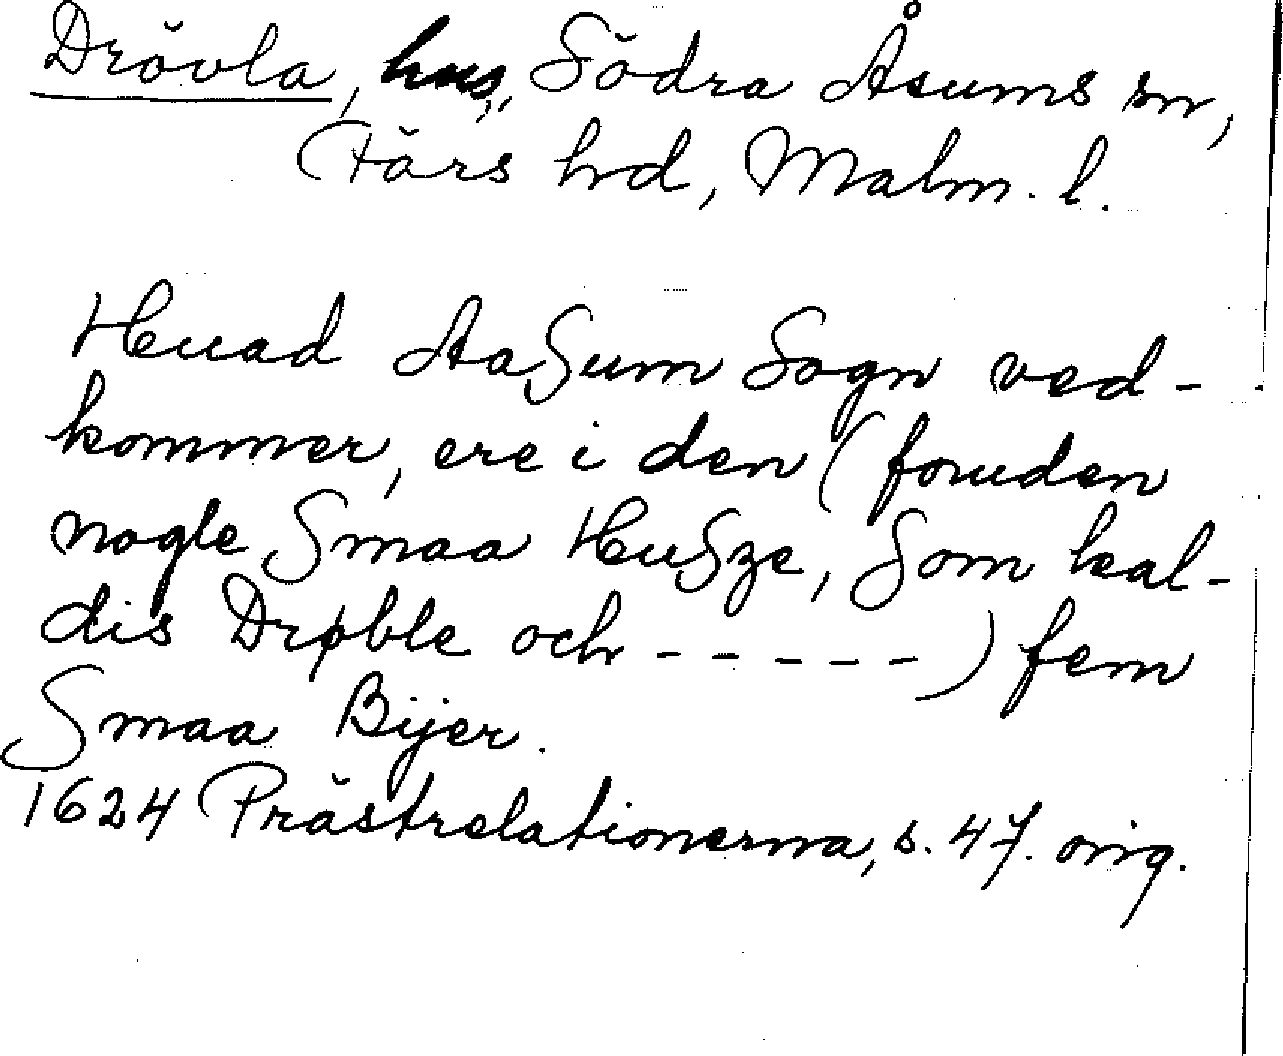 Drövla, hus, Södra Åsums sn,
Färs hd, Malm. l.
Huad AaSum Sogn ved-
kommer, ere i den (foruden
nogle Smaa HuSze, Som kal-
dis Drøble och - - - - -) fem
Smaa Bijer.
1624 Prästrelationerna, s. 47. orig.